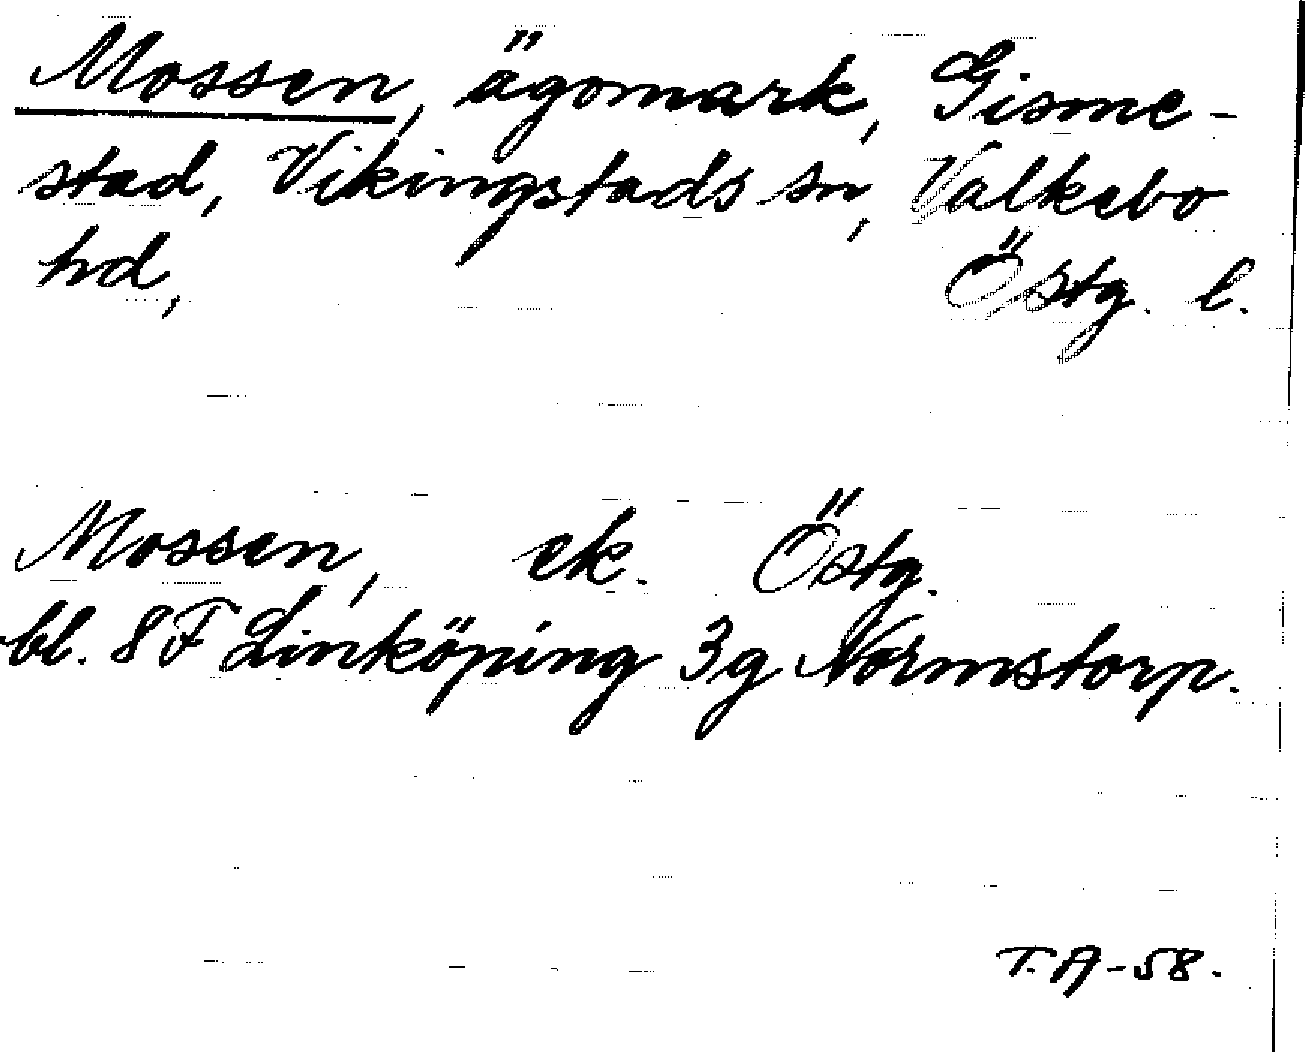 Mossen, ägomark, Gisme-
stad, Vikingstads sn, Valkebo
hd, Östg. l.
Mossen, ek. Östg.
bl. 8 F Linköping 3g Normstorp.
T. A-58.